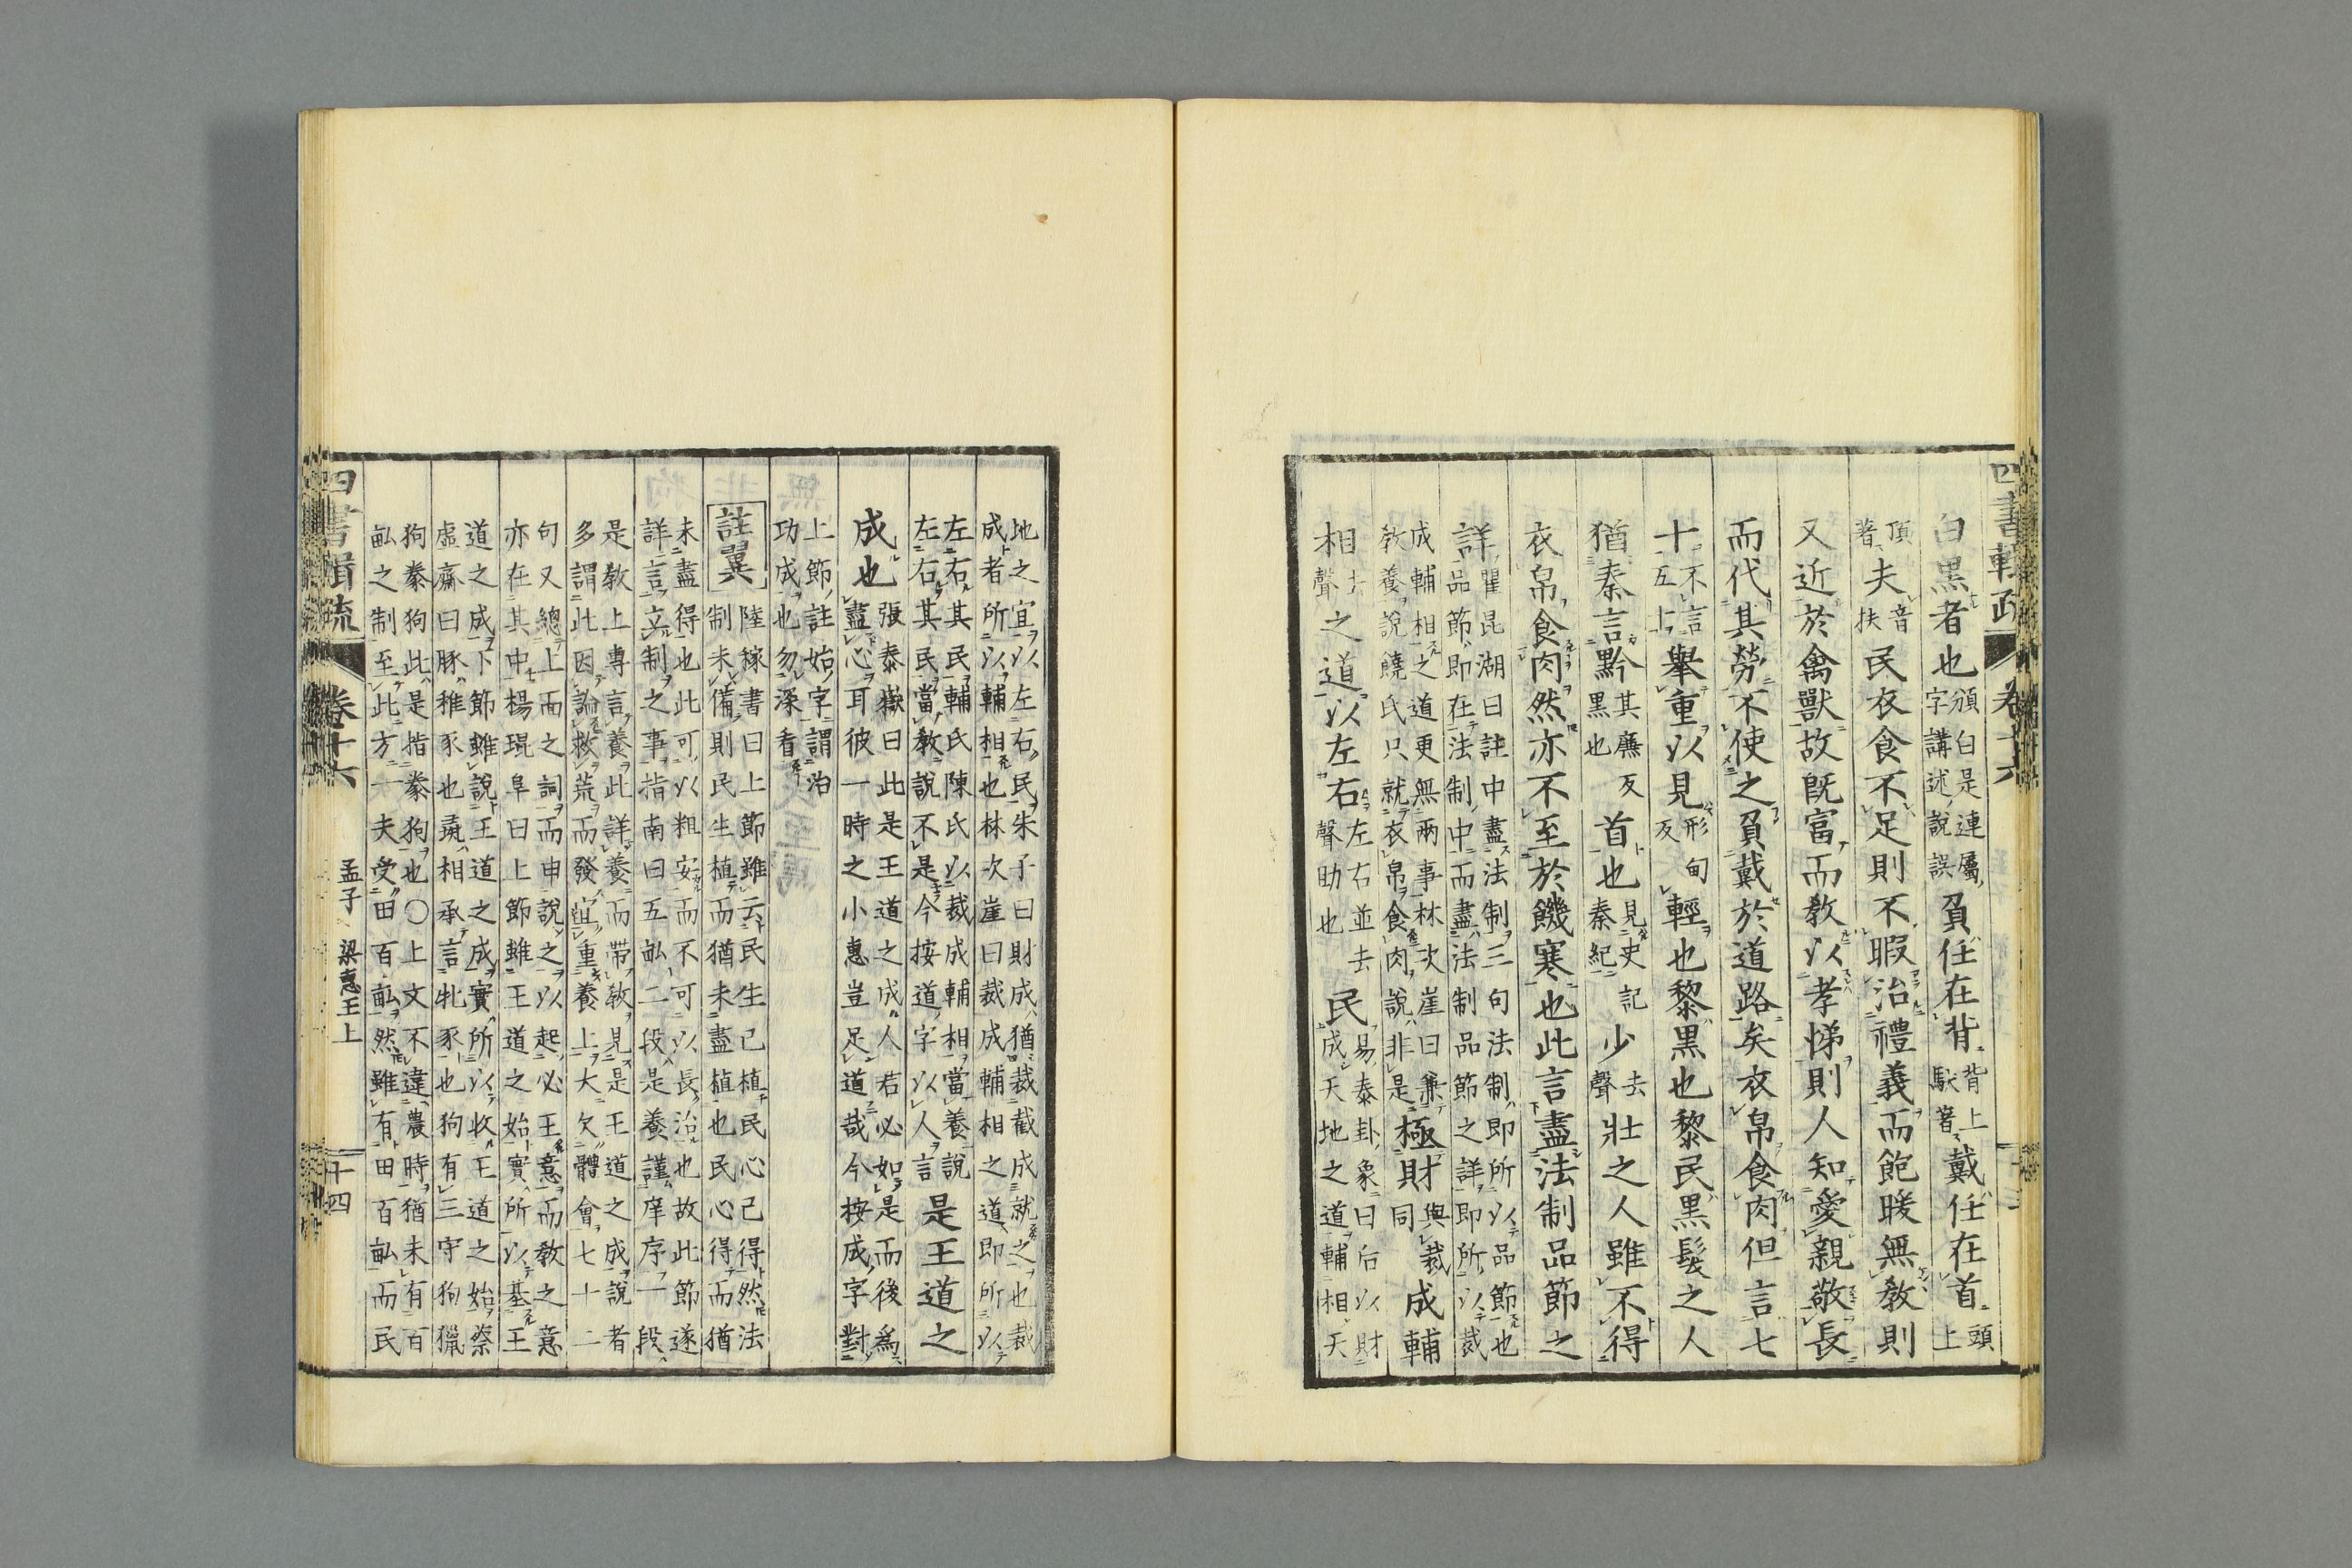 四書輯疏 卷十六
白黒者也頒白是連屬字講述說誤負任在背背上馱著戴任在首頭上
頂著夫音扶民衣食不足則不暇治禮義而飽暖無敎則
又近於禽獸故旣富而敎以孝悌則人知愛親敬長
而代其勞不使之負戴於道路矣衣帛食肉但言七
十不言五上擧重以見形甸反輕也黎黒也黎民黒髮之人
猶秦言黔其廉反黒也首也見史記秦紀少去聲壯之人雖不得
衣帛食肉然亦不至於饑寒也此言盡法制品節之
詳瞿昆湖曰註中盡法制三句法制卽所以品節也品節卽在法制中而盡法制品節之詳卽所以裁
成輔相之道更無兩事林次崖曰兼敎養說饒氏只就衣帛食肉說非是極財與裁同成輔
相去聲之道以左右左右並去聲助也民易泰卦象曰后以財成天地之道輔相天
地之宜以左右民朱子曰財成猶裁截成就之也裁成者所以輔相也林次崖曰裁成輔相之道卽所以
左右其民輔氏陳氏以裁成輔相當養說左右其民當敎說不是今按道字以人言是王道之
成也張泰嶽曰此是王道之成人君必如是而後爲盡心耳彼一時之小惠豈足道哉今按成字對
上節註始字謂治功成也勿深看
註翼陸稼書曰上節雖云民生已植民心已得然法制未備則民生植而猶未盡植也民心得而猶
未盡得也此可以粗安而不可以長治也故此節遂詳言立制之事指南曰五畝二段是養謹庠序一段
是敎上專言養此詳養而帶敎見是王道之成說者多謂此因論救荒而發宜重養上大欠體會七十二
句又總上而之詞而申說之以起必王意而敎之意亦在其中楊琨阜曰上節雖王道之始實所以基王
道之成下節雖說王道之成實所以收王道之始蔡虛齋曰豚稚豕也彘相承言牝豕也狗有三守狗獵
狗豢狗此是指豢狗也○上文不違農時猶未有百畝之制至此方一夫受田百畝然雖有田百畝而民
四書輯疏 卷十六 孟子 梁惠王上 十四